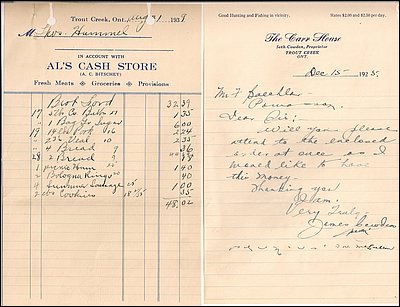 Trout Creek, Ont., Aug 1 1938
M Thos. Hummel
IN ACCOUNT WITH
AL'S CASH STORE
(A. C. BITSCHEY)
Fresh Meats Groceries Provisions
Brot Ford 32 39
17 1 35
1 Bag Sugar 6 00
19 Pork 16 2 24
2 Veal 10 35
4 Bread 9 36
28 2 Bread 9 18
1 1 00
2 Bologna Rings 20 40
4 Summer Sausage 25 1 00
2 Cookies 35
48.02
Good Hunting and Fishing in vicinity.
Rates $2.00 and $2.50 per day.
The Carr House
Seth Cowden, Proprietor
TROUT CREEK
ONT.
Dec 15 1925
Mr. F
Dear Sir:
Will you please
attend to the enclosed
order at once as I
would like to have
this money.
Thanking you
I am.
Very Truly,
James Cowden